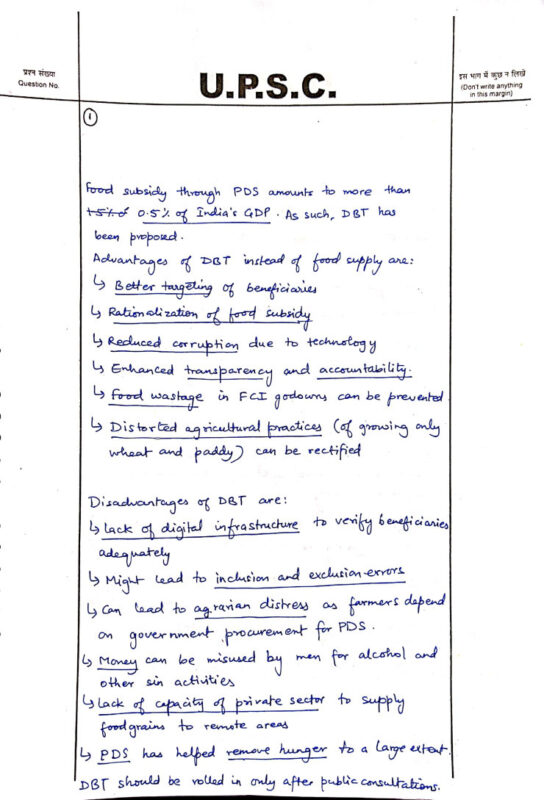 प्रश्न संख्या
Question No.
U.P.S.C.
इस भाग में कुछ न लिखें
(Don't write anything
in this margin)
1
Food subsidy through PDS amounts to more than
1.5% of 0.5% of India's GDP. As such, DBT has
been proposed.
Advantages of DBT instead of food supply are:
↳ Better targeting of beneficiaries
↳ Rationalization of food subsidy
↳ Reduced corruption due to technology
↳ Enhanced transparency and accountability.
↳ Food wastage in FCI godowns can be prevented
↳ Distorted agricultural practices (of growing only
wheat and paddy) can be rectified
Disadvantages of DBT are:
↳ Lack of digital infrastructure to verify beneficiaries
adequately
↳ Might lead to inclusion and exclusion errors
↳ Can lead to agrarian distress as farmers depend
on government procurement for PDS.
↳ Money can be misused by men for alcohol and
other sin activities
↳ Lack of capacity of private sector to supply
foodgrains to remote areas
↳ PDS has helped remove hunger to a large extent.
DBT should be rolled in only after public consultations.